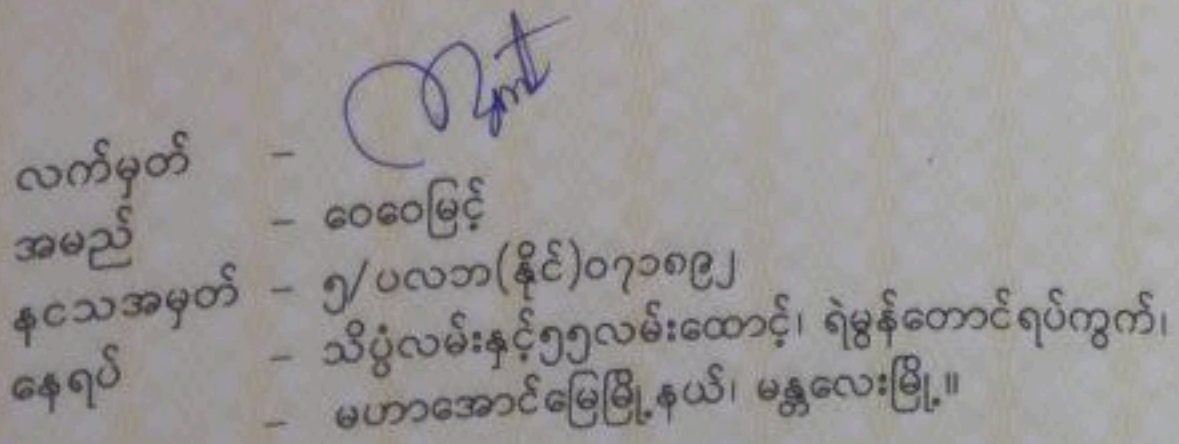 လက်မှတ် -
အမည် - ဝေဝေမြင့်
နငသအမှတ် - ၅/ပလဘ(နိုင်)၀၇၁၈၉၂
နေရပ် - သိပ္ပံလမ်းနှင့်၅၅လမ်းထောင့်၊ ရဲမွန်တောင်ရပ်ကွက်၊
- မဟာအောင်မြေမြို့နယ်၊ မန္တလေးမြို့။